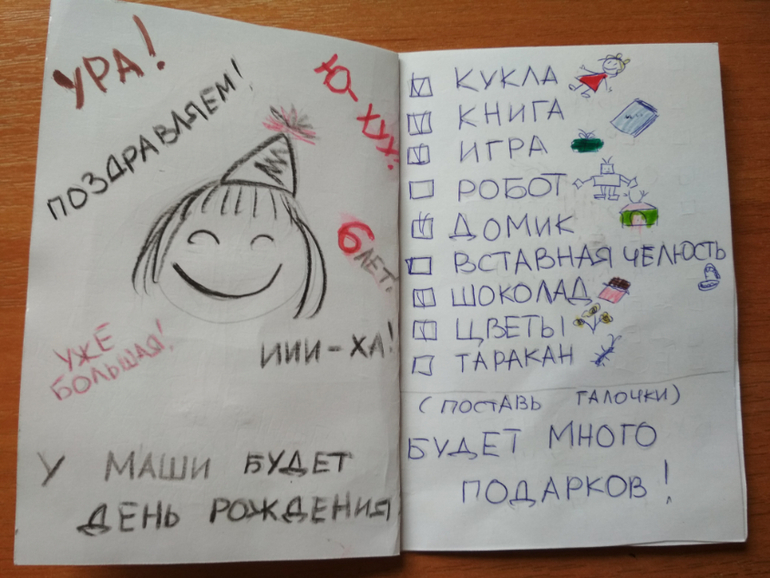 УРА!
ПОЗДРАВЛЯЕМ!
Ю-ХУХ!
6 ЛЕТ!
УЖЕ
БОЛЬШАЯ!
ИИИ-ХА!
У МАШИ БУДЕТ
ДЕНЬ РОЖДЕНИЯ
КУКЛА
КНИГА
ИГРА
РОБОТ
ДОМИК
ВСТАВНАЯ ЧЕЛЮСТЬ
ШОКОЛАД
ЦВЕТЫ
ТАРАКАН
(ПОСТАВЬ ГАЛОЧКИ)
БУДЕТ МНОГО
ПОДАРКОВ!